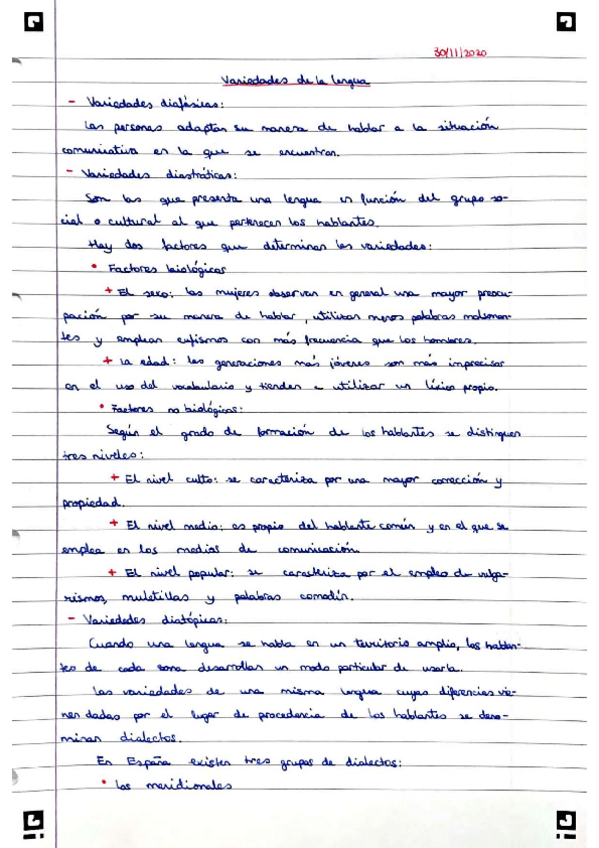 30/11/2020
Variedades de la lengua
- Variedades diafásicas:
Las personas adaptan su manera de hablar a la situación
comunicativa en la que se encuentran.
- Variedades diastráticas:
Son las que presenta una lengua en función del grupo so-
cial o cultural al que pertenecen los hablantes.
Hay dos factores que determinan las variedades:
• Factores biológicos
+ El sexo: las mujeres observan en general una mayor preocu-
pación por su manera de hablar, utilizan menos palabras malsonan-
tes y emplean eufismos con más frecuencia que los hombres.
+ la edad: las generaciones más jóvenes son más imprecisas
en el uso del vocabulario y tienden a utilizar un léxico propio.
• Factores no biológicos:
Según el grado de formación de los hablantes se distinguen
tres niveles:
+ El nivel culto: se caracteriza por una mayor corrección y
propiedad.
+ El nivel medio: es propio del hablante común y en el que se
emplea en los medios de comunicación.
+ El nivel popular: se caracteriza por el empleo de vulga-
rismos, muletillas y palabras comodín.
- Variedades diatópicas:
Cuando una lengua se habla en un territorio amplio, los hablan-
tes de cada zona desarrollan un modo particular de usarla.
Las variedades de una misma lengua cuyas diferencias vie-
nen dadas por el lugar de procedencia de los hablantes se deno-
minan dialectos.
En España existen tres grupos de dialectos:
• Los meridionales